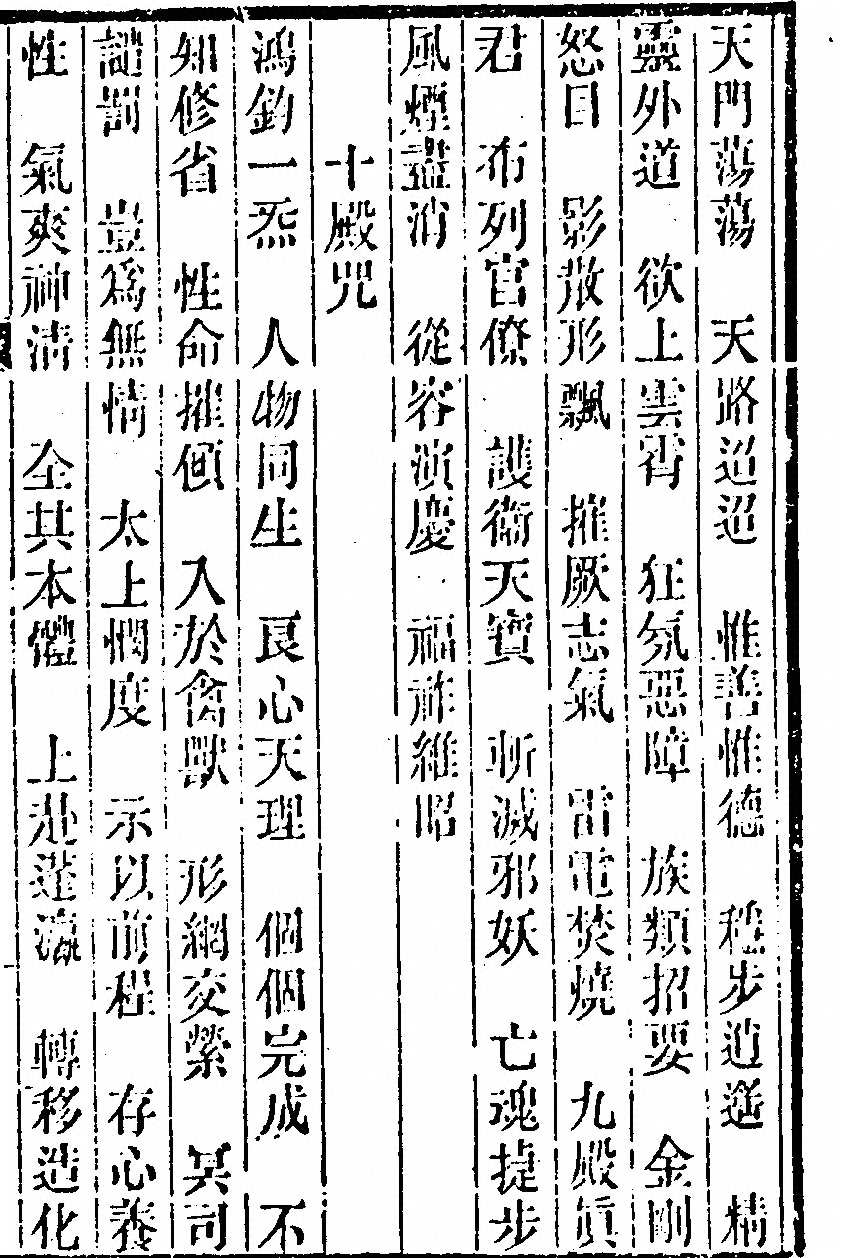 天門蕩蕩　天路迢迢　惟善惟德　穩步逍遙　精
靈外道　欲上雲霄　狂氛惡障　族類招要　金剛
怒目　影散形飄　摧厥志氣　雷電焚燒　九殿眞
君　布列官僚　護衞天寶　斬滅邪妖　亡魂捷步
風煙盡消　從容演慶　福祚維昭
十殿咒
鴻鈞一炁　人物同生　良心天理　個個完成　不
知修省　性命摧傾　入於禽獸　形網交縈　冥司
譴罰　豈爲無情　太上憫度　示以前程　存心養
性　氣爽神清　全其本體　上赴蓬瀛　轉移造化